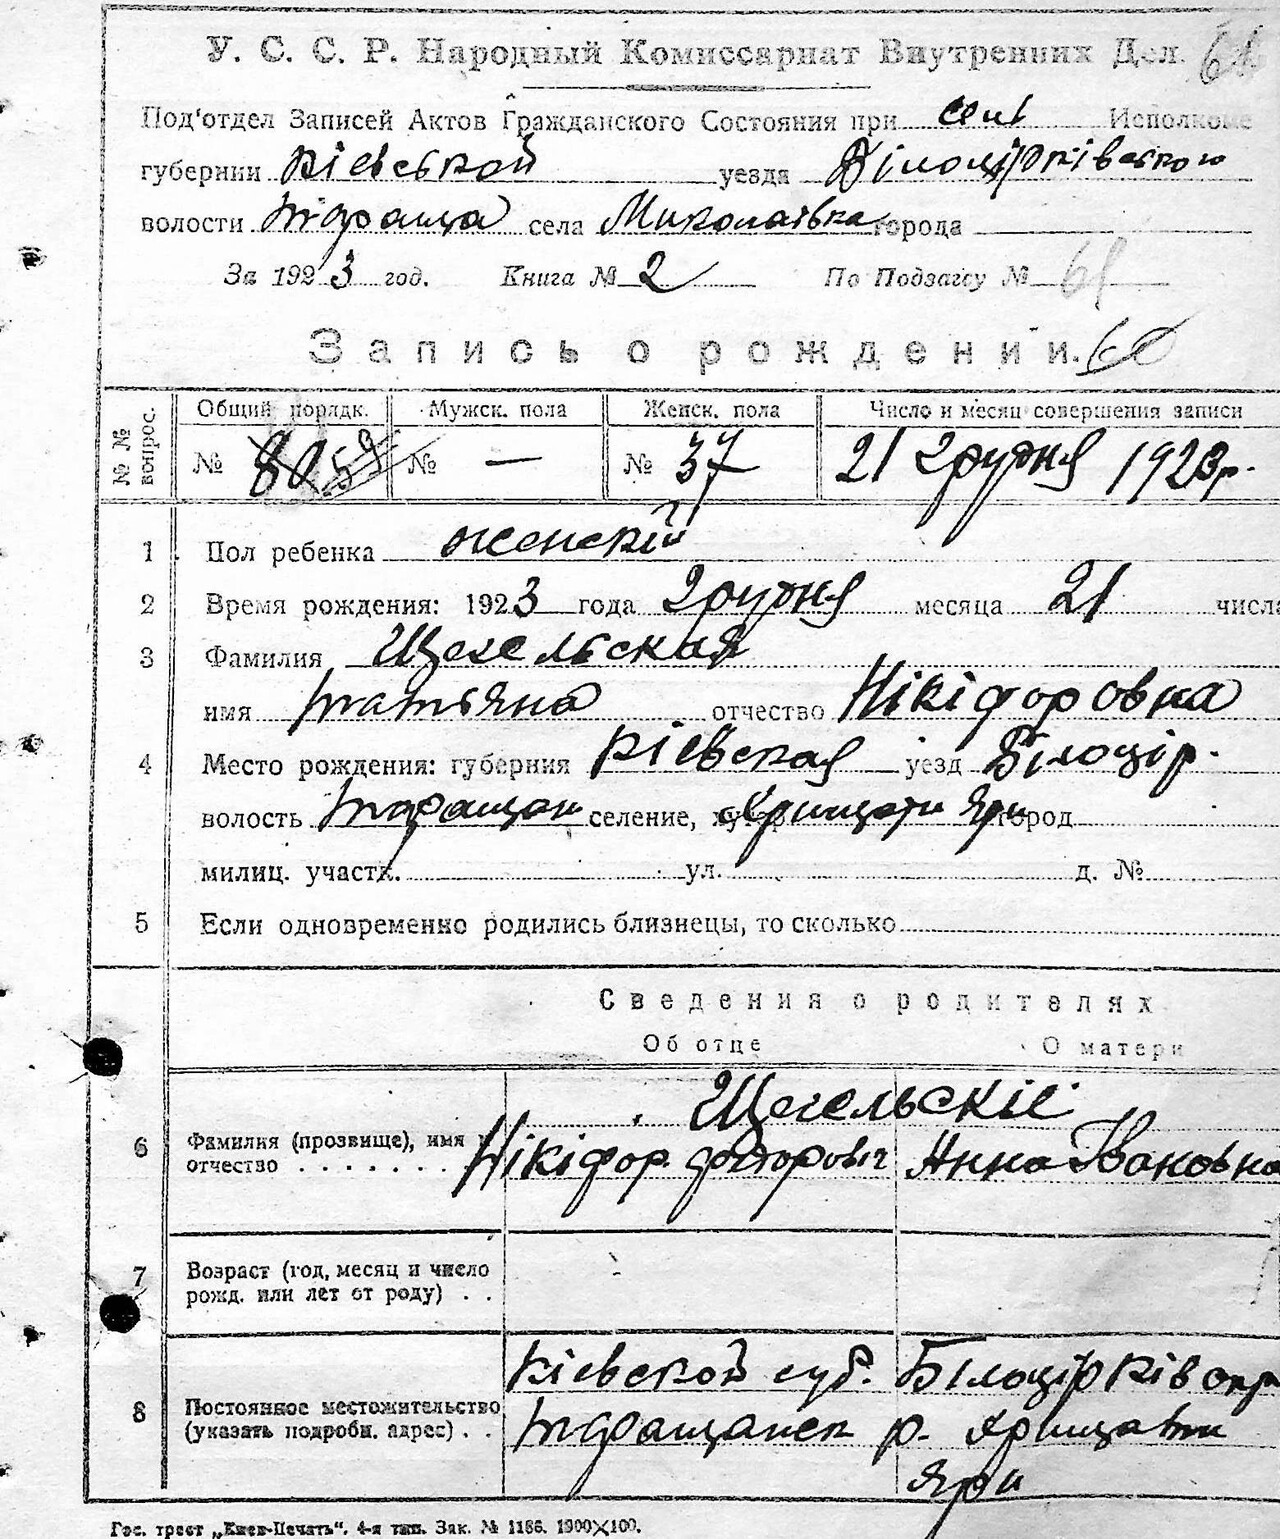 У. С. С. Р. Народный Комиссариат Внутренних Дел. 61
Под'отдел Записей Актов Гражданского Состояния при сель Исполкоме
губернии Кіевской уезда Білоцірківского
волости Тараща села Миколаівка города
За 1923 год. Книга № 2 По Подзагсу № 61
Запись о рождении. 60
№ № вопрос. Общий порядк. Мужск. пола Женск. пола Число и месяц совершения записи
№ 80 59 № — № 37 21 грудня 1923р.
1 Пол ребенка женскій
2 Время рождения: 1923 года грудня месяца 21 числа
3 Фамилия Щегельская
имя Татьяна отчество Нікіфоровна
4 Место рождения: губерния Кіевская уезд Білоцір.
волость Таращан селение, хутор Хрищати Яри город
милиц. участк. ул. д. №
5 Если одновременно родились близнецы, то сколько
Сведения о родителях
Об отце О матери
Щегельскіе
6 Фамилия (прозвище), имя и Нікіфор. Фодорович Анна Івановна
отчество . . . . . . .
7 Возраст (год, месяц и число
рожд. или лет от роду) . .
Кіевской губ. Білоцірків окр
8 Постоянное местожительство Таращанск р. Хрищати
(указать подробн. адрес) . . Яри
Гос. трест „Киев-Печать". 4-я тип. Зак. № 1186. 1900×100.